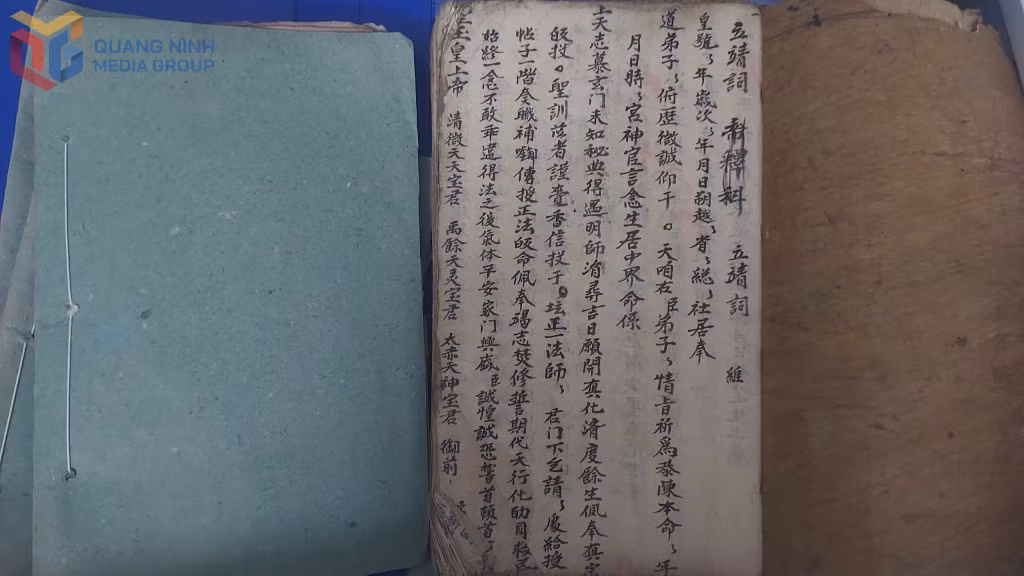 QUANG NINH
MEDIA GROUP
立靖詞 立靖詞 維
皇號〻年歲次〻年月日朔越〻者〻總〻社居奉
道弟子〻俯歷微誠仰干。天咱右臣弟子〻情旨祈為恭陳本命〻年
月日時〻宮神宦言念生居中界命係
上天志慕玄門未知秘典得遇明師涓尋吉日願開真化濟度餘生佩奉真宗
皈投。聖訓 者謹賫香信投于。坛正一法師〻君門下乞請〻處給授
帖子一階奏職補 傳授正法皈命佩奉竭志焚修誓期代天行化助國救
始終一念不敢乖違得法之後氣体平安家門興盛臣誠惶誠恐誓首頓首〻
玉皇上帝 清微天天宝君 禹餘天灵宝君 太赤天神宝君 御前